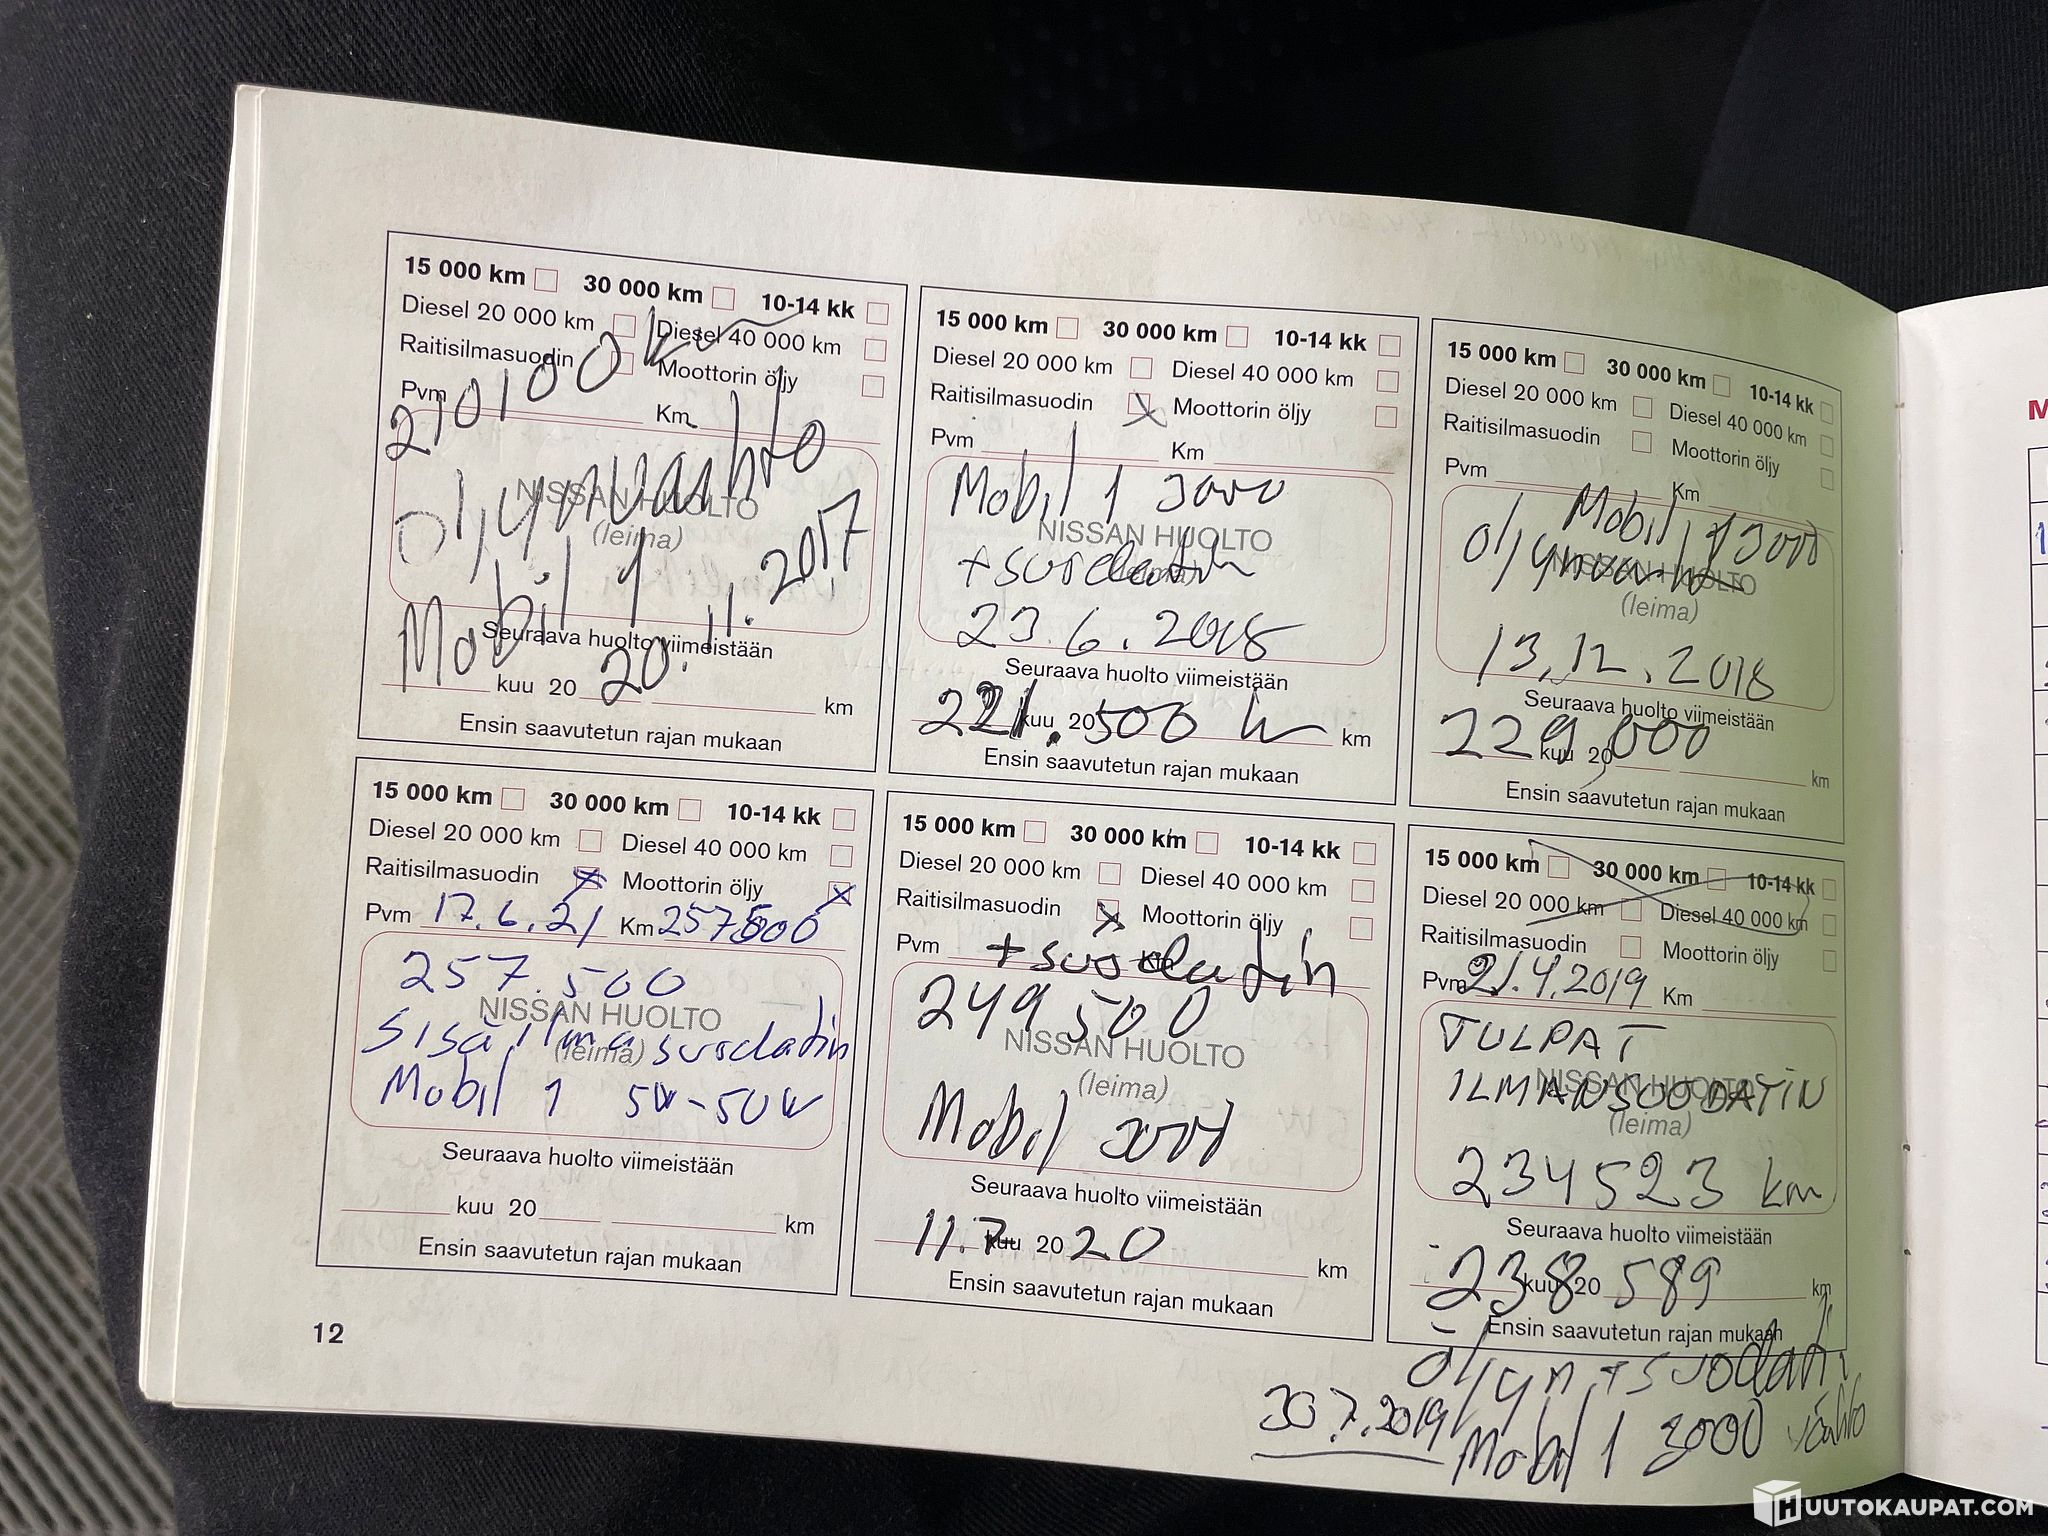 15 000 km 30 000 km 10-14 kk
Diesel 20 000 km Diesel 40 000 km
Raitisilmasuodin Moottorin öljy
Pvm Km
210100
Öljynvaihto
NISSAN HUOLTO
(leima)
Mobil 1 20.11.2017
Seuraava huolto viimeistään
kuu 20 km
Ensin saavutetun rajan mukaan
15 000 km 30 000 km 10-14 kk
Diesel 20 000 km Diesel 40 000 km
Raitisilmasuodin Moottorin öljy
Pvm Km
Mobil 1 3000
NISSAN HUOLTO
(leima)
+suodatin
23.6.2018
Seuraava huolto viimeistään
221.500
kuu 20 km
Ensin saavutetun rajan mukaan
15 000 km 30 000 km 10-14 kk
Diesel 20 000 km Diesel 40 000 km
Raitisilmasuodin Moottorin öljy
Pvm Km
Mobil 1 3000
NISSAN HUOLTO
(leima)
13.12.2018
Seuraava huolto viimeistään
229,000
kuu 20 km
Ensin saavutetun rajan mukaan
15 000 km 30 000 km 10-14 kk
Diesel 20 000 km Diesel 40 000 km
Raitisilmasuodin Moottorin öljy
Pvm 17.6.21 Km 257500
257.500
NISSAN HUOLTO
(leima)
Sisäilmasuodatin
Mobil 1 5W-50W
Seuraava huolto viimeistään
kuu 20 km
Ensin saavutetun rajan mukaan
15 000 km 30 000 km 10-14 kk
Diesel 20 000 km Diesel 40 000 km
Raitisilmasuodin Moottorin öljy
Pvm Km
+suodatin
249500
NISSAN HUOLTO
(leima)
Mobil
Seuraava huolto viimeistään
11.7 kuu 20 20 km
Ensin saavutetun rajan mukaan
15 000 km 30 000 km 10-14 kk
Diesel 20 000 km Diesel 40 000 km
Raitisilmasuodin Moottorin öljy
Pvm 21.4.2019 Km
TULPAT
ILMANSOODATIN
NISSAN HUOLTO
(leima)
234523 km
Seuraava huolto viimeistään
238 589
kuu 20 km
Ensin saavutetun rajan mukaan
öljyn +suodatin
30.7.2019 Mobil 1 3000 vaihto
12
M
HUUTOKAUPAT.COM